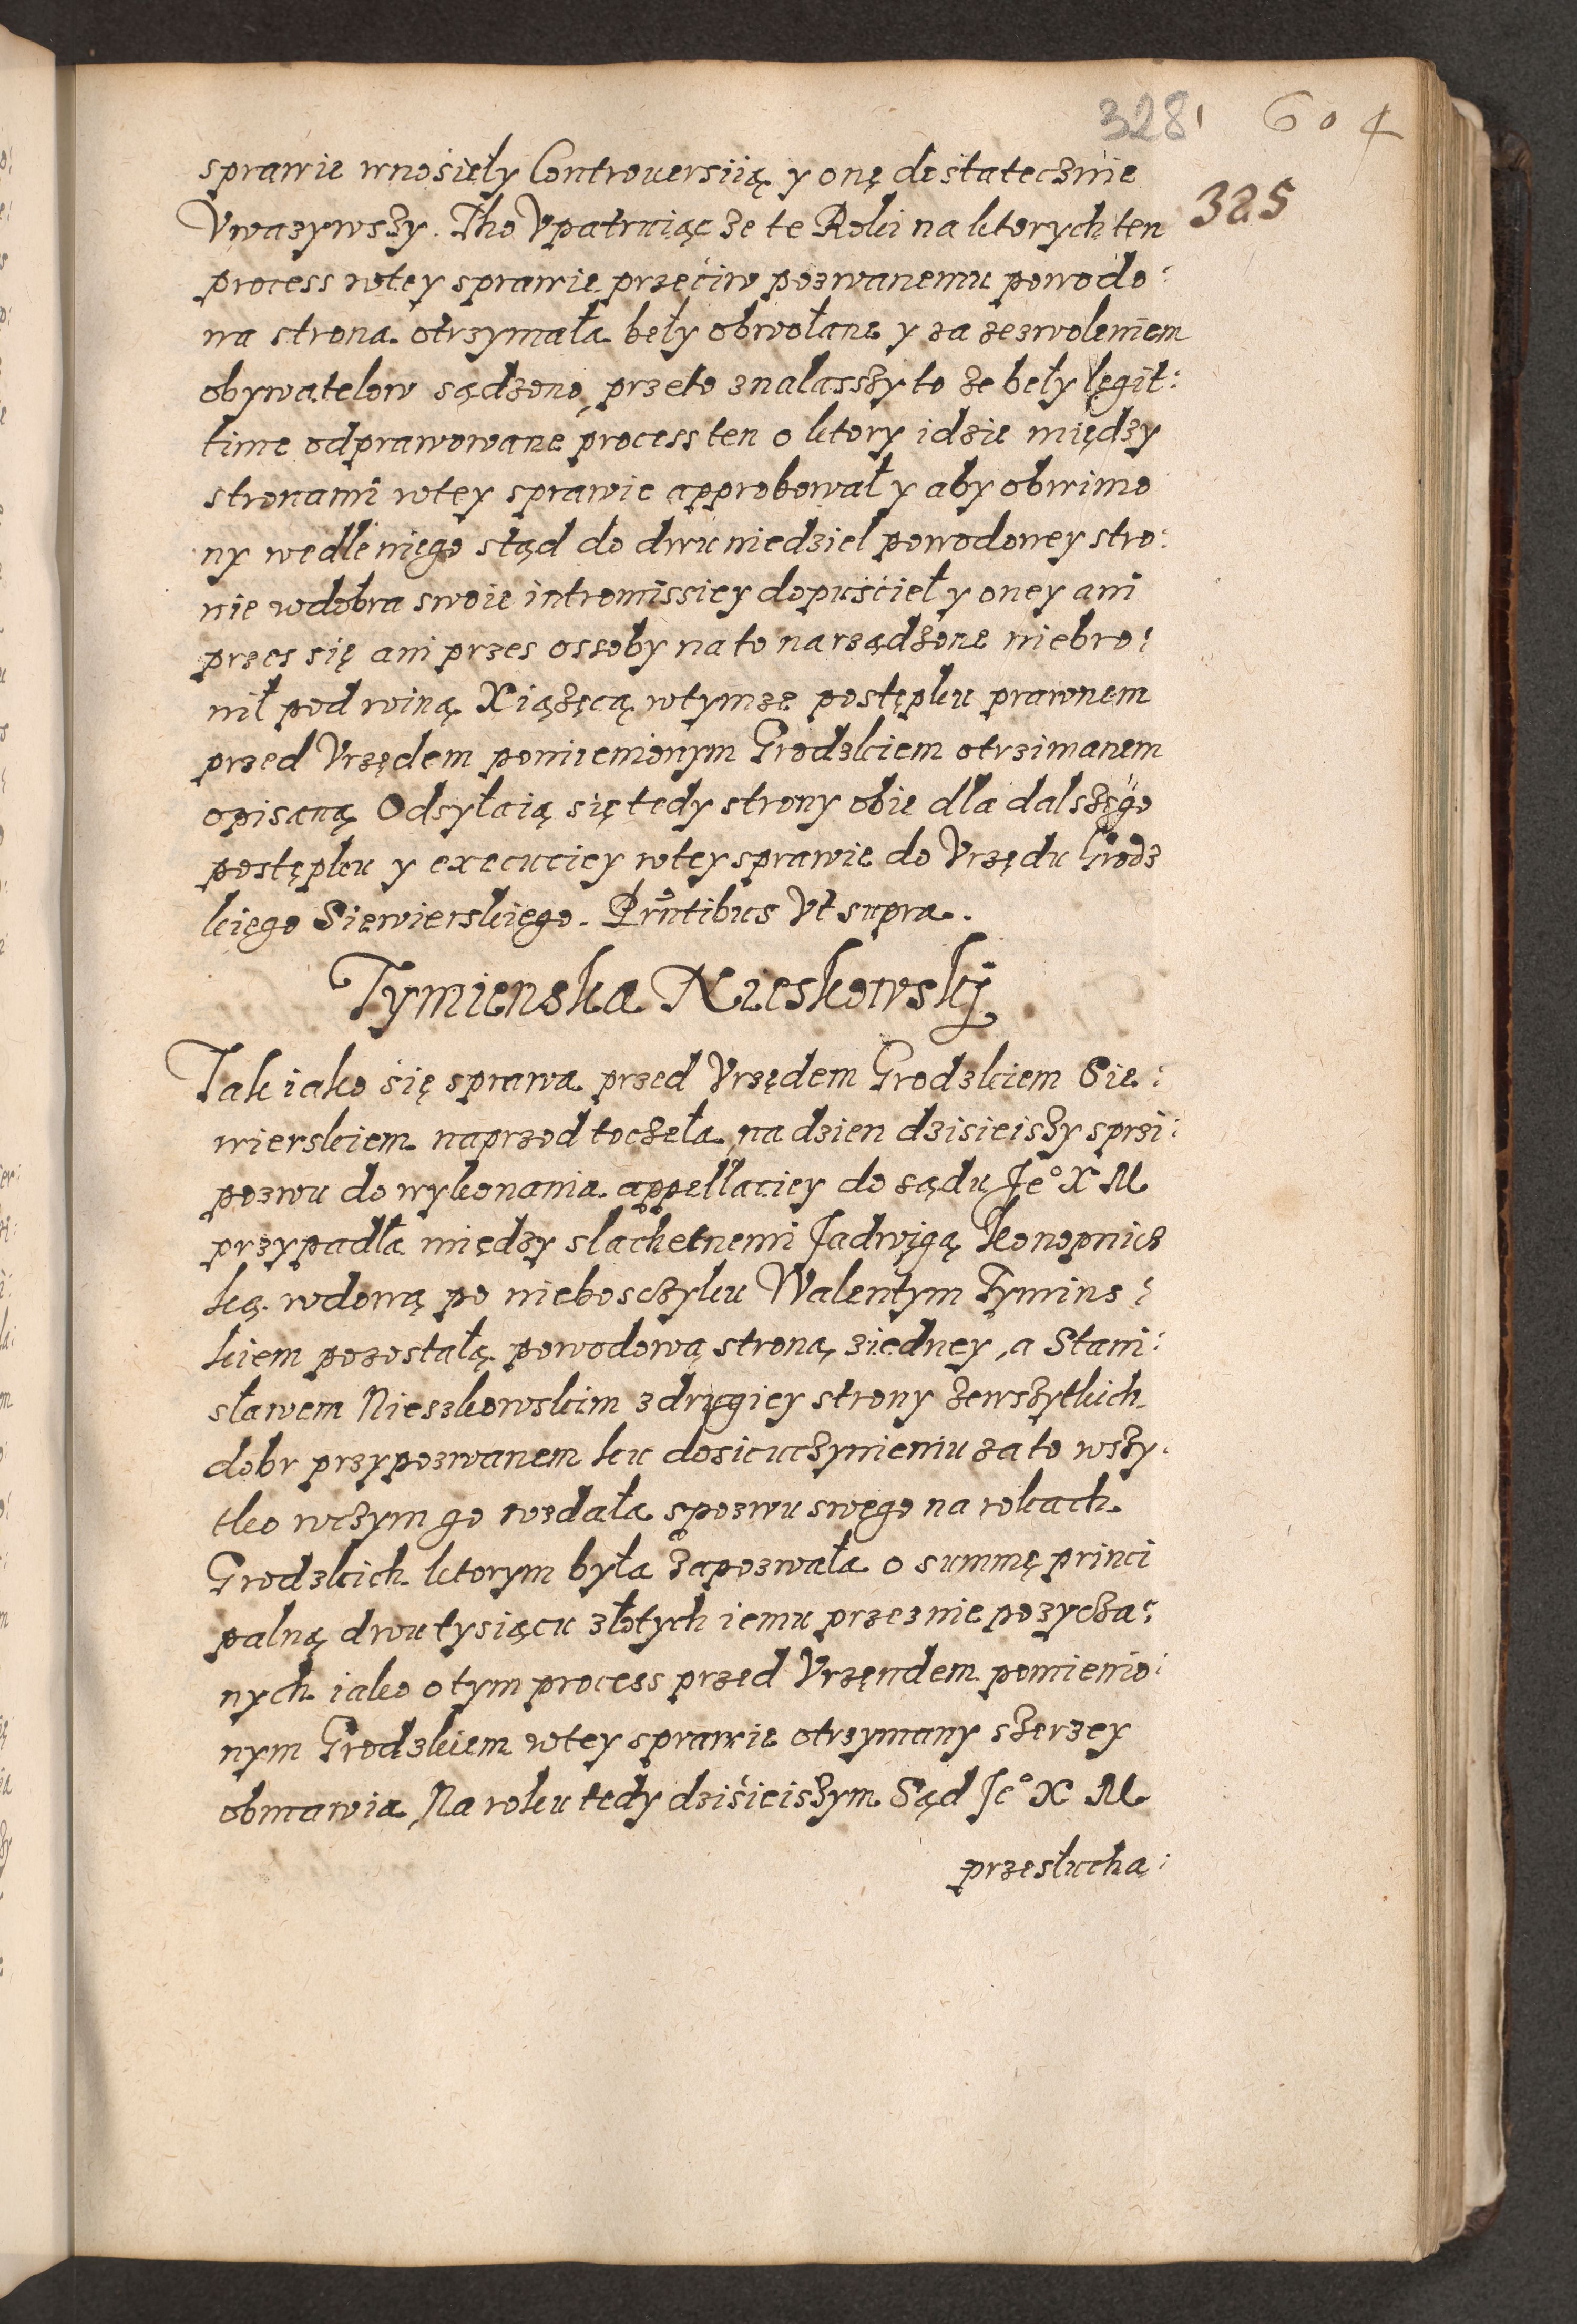 328 604
325
sprawie wnosieły Controuersiią y onę dostatecznie
Vwazywszy. Tho Vpatruiąc że te Roki na ktorych ten
process wtey sprawie przeciw pozwanemu powodo:
wa strona otrzymała beły obwołane y za zezwoleniem
obywatelow sądzono, przeto znalasszy to że beły legit:
time odprawowane process ten o ktory idzie między
stronami wtey sprawie approbował y aby obwinio
ny wedle niego stąd do dwu niedziel powodowey stro:
nie wdobra swoie intromissiey dopuścieł y oney ani
przes się ani przes ossoby na to narządzone niebro:
nił pod winą Xiążęcą wtymze postępku prawnem
przed Vrzędem pomienionym Grodzkiem otrzimanem
opisaną Odsyłaią się tedy strony obie dla dalszego
postępku y execuciey wtey sprawie do Vrzędu Grodz
kiego Siewierskiego. Prntibus Vt supra.
Tymienska Nieskowskÿ
Tak iako się sprawa przed Vrzędem Grodzkiem Sie:
wierskiem naprzod toczeła, na dzien dzisieiszy sprzi:
pozwu do wykonania appellaciey do sądu Je° X M
przypadła między slachetnemi Jadwigą Konopnicz
ką wdową po nieboszczyku Walentym Tymins:
kiem pozostałą powodową stroną, ziedney, a Stani:
sławem Nieszkowskim zdrugiey strony zewszytkich
dobr przypozwanem ku dosicuczynieniu za to wszy:
tko wczym go wzdała spozwu swego na rokach
Grodzkich ktorym była zapozwała o summę princi
palną dwu tysiącu złotych iemu przeznie pozycza:
nych iako o tym process przed Vrzęndem pomienio:
nym Grodzkiem wtey sprawie otrzymany szerzey
obmawia, Na roku tedy dzisieiszym Sąd Je° X M
przesłucha: